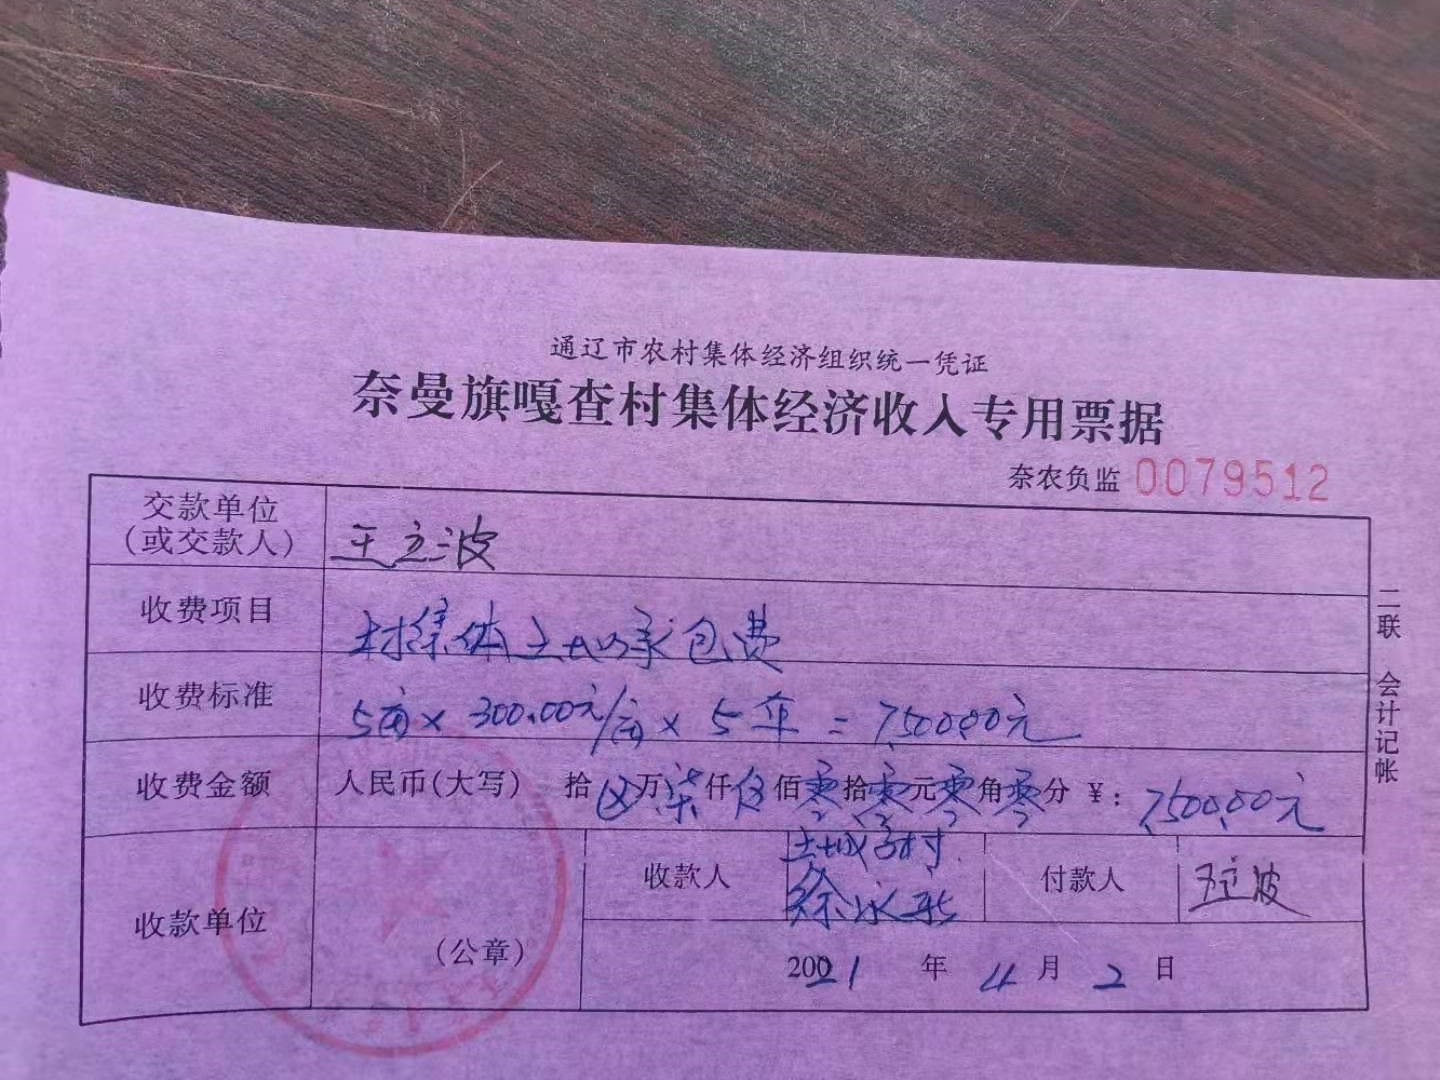 通辽市农村集体经济组织统一凭证
奈曼旗嘎查村集体经济收入专用票据
奈农负监 0079512
交款单位
(或交款人) 王立波
收费项目 村集体土地承包费
收费标准 5亩×300.00元/亩×5年=7,500.00元
收费金额 人民币(大写) 拾 万柒仟伍佰零拾零元零角零分 ¥:7,500.00元
收款单位 (公章) 收款人 土城子村 付款人 王立波
2021 年 4 月 2 日
二联 会计记帐